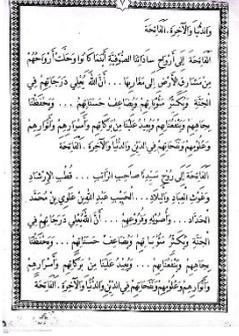 وَالدُّنْيَا وَالْآخِرَةِ، اَلْفَاتِحَةْ
اَلْفَاتِحَةَ إِلَى أَرْوَاحِ سَادَاتِنَا الصُّوْفِيَّةِ أَيْنَمَا كَانُوا وَحَلَّتْ أَرْوَاحُهُمْ
مِنْ مَشَارِقِ الْأَرْضِ إِلَى مَغَارِبِهَا ... أَنَّ اللهَ يُعْلِي دَرَجَاتِهِمْ فِي
الْجَنَّةِ وَيُكَثِّرُ مَثُوْبَاتِهِمْ وَيُضَاعِفُ حَسَنَاتِهِمْ ... وَيَحْفَظُنَا
بِجَاهِهِمْ وَيَنْفَعُنَا بِهِمْ وَيُعِيْدُ عَلَيْنَا مِنْ بَرَكَاتِهِمْ وَأَسْرَارِهِمْ وَأَنْوَارِهِمْ
وَعُلُوْمِهِمْ وَنَفَحَاتِهِمْ فِي الدِّيْنِ وَالدُّنْيَا وَالْآخِرَةِ، اَلْفَاتِحَةْ
اَلْفَاتِحَةَ إِلَى رُوْحِ سَيِّدِنَا صَاحِبِ الرَّاتِبِ ... قُطْبِ الْإِرْشَادِ
وَغَوْثِ الْعِبَادِ وَالْبِلَادِ ... اَلْحَبِيْبِ عَبْدِ اللهِ بْنِ عَلَوِيْ بْنِ مُحَمَّدْ
الْحَدَّادْ ... وَأُصُوْلِهِ وَفُرُوْعِهِمْ ... أَنَّ اللهَ يُعْلِي دَرَجَاتِهِمْ فِي
الْجَنَّةِ وَيُكَثِّرُ مَثُوْبَاتِهِمْ وَيُضَاعِفُ حَسَنَاتِهِمْ ... وَيَحْفَظُنَا
بِجَاهِهِمْ وَيَنْفَعُنَا بِهِمْ ... وَيُعِيْدُ عَلَيْنَا مِنْ بَرَكَاتِهِمْ وَأَسْرَارِهِمْ
وَأَنْوَارِهِمْ وَعُلُوْمِهِمْ وَنَفَحَاتِهِمْ فِي الدِّيْنِ وَالدُّنْيَا وَالْآخِرَةِ، اَلْفَاتِحَةْ